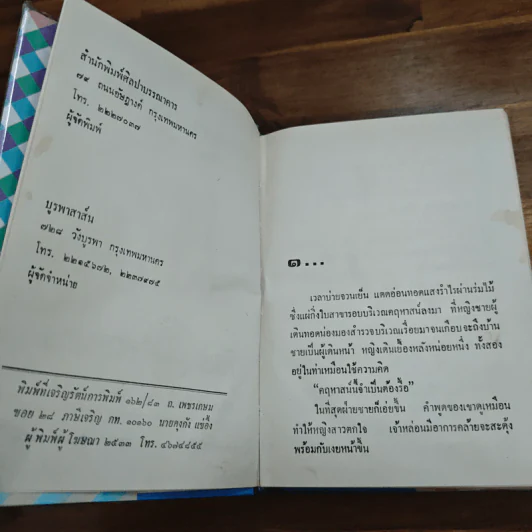 สำนักพิมพ์ศิลปาบรรณาคาร
๗๙ ถนนอัษฎางค์ กรุงเทพมหานคร
โทร. ๒๒๒๗๐๓๗
ผู้จัดพิมพ์
บูรพาสาส์น
๗๒๘ วังบูรพา กรุงเทพมหานคร
โทร. ๒๒๑๕๖๗๒, ๒๒๓๗๙๗๕
ผู้จัดจำหน่าย
พิมพ์ที่เจริญรัตน์การพิมพ์ ๑๖๒/๘๓ ถ. เพชรเกษม
ซอย ๒๘ ภาษีเจริญ กท. ๑๐๑๖๐ นายคุงกัง แซ่อึ้ง
ผู้พิมพ์ผู้โฆษณา ๒๕๓๓ โทร. ๔๖๗๔๘๕๕
๑...
เวลาบ่ายจวนเย็น แดดอ่อนทอดแสงรำไรผ่านร่มไม้
ซึ่งแผ่กิ่งใบสาขารอบบริเวณคฤหาสน์ลงมา ที่หญิงชายผู้
เดินทอดน่องมองสำรวจบริเวณเรื่อยมาจนเกือบจะถึงบ้าน
ชายเป็นผู้เดินหน้า หญิงเดินเยื้องหลังหน่อยหนึ่ง ทั้งสอง
อยู่ในท่าเหมือนใช้ความคิด
“คฤหาสน์นี้จำเป็นต้องรื้อ”
ในที่สุดฝ่ายชายก็เอ่ยขึ้น คำพูดของเขาดูเหมือน
ทำให้หญิงสาวตกใจ เจ้าหล่อนมีอาการคล้ายจะสะดุ้ง
พร้อมกับเงยหน้าขึ้น